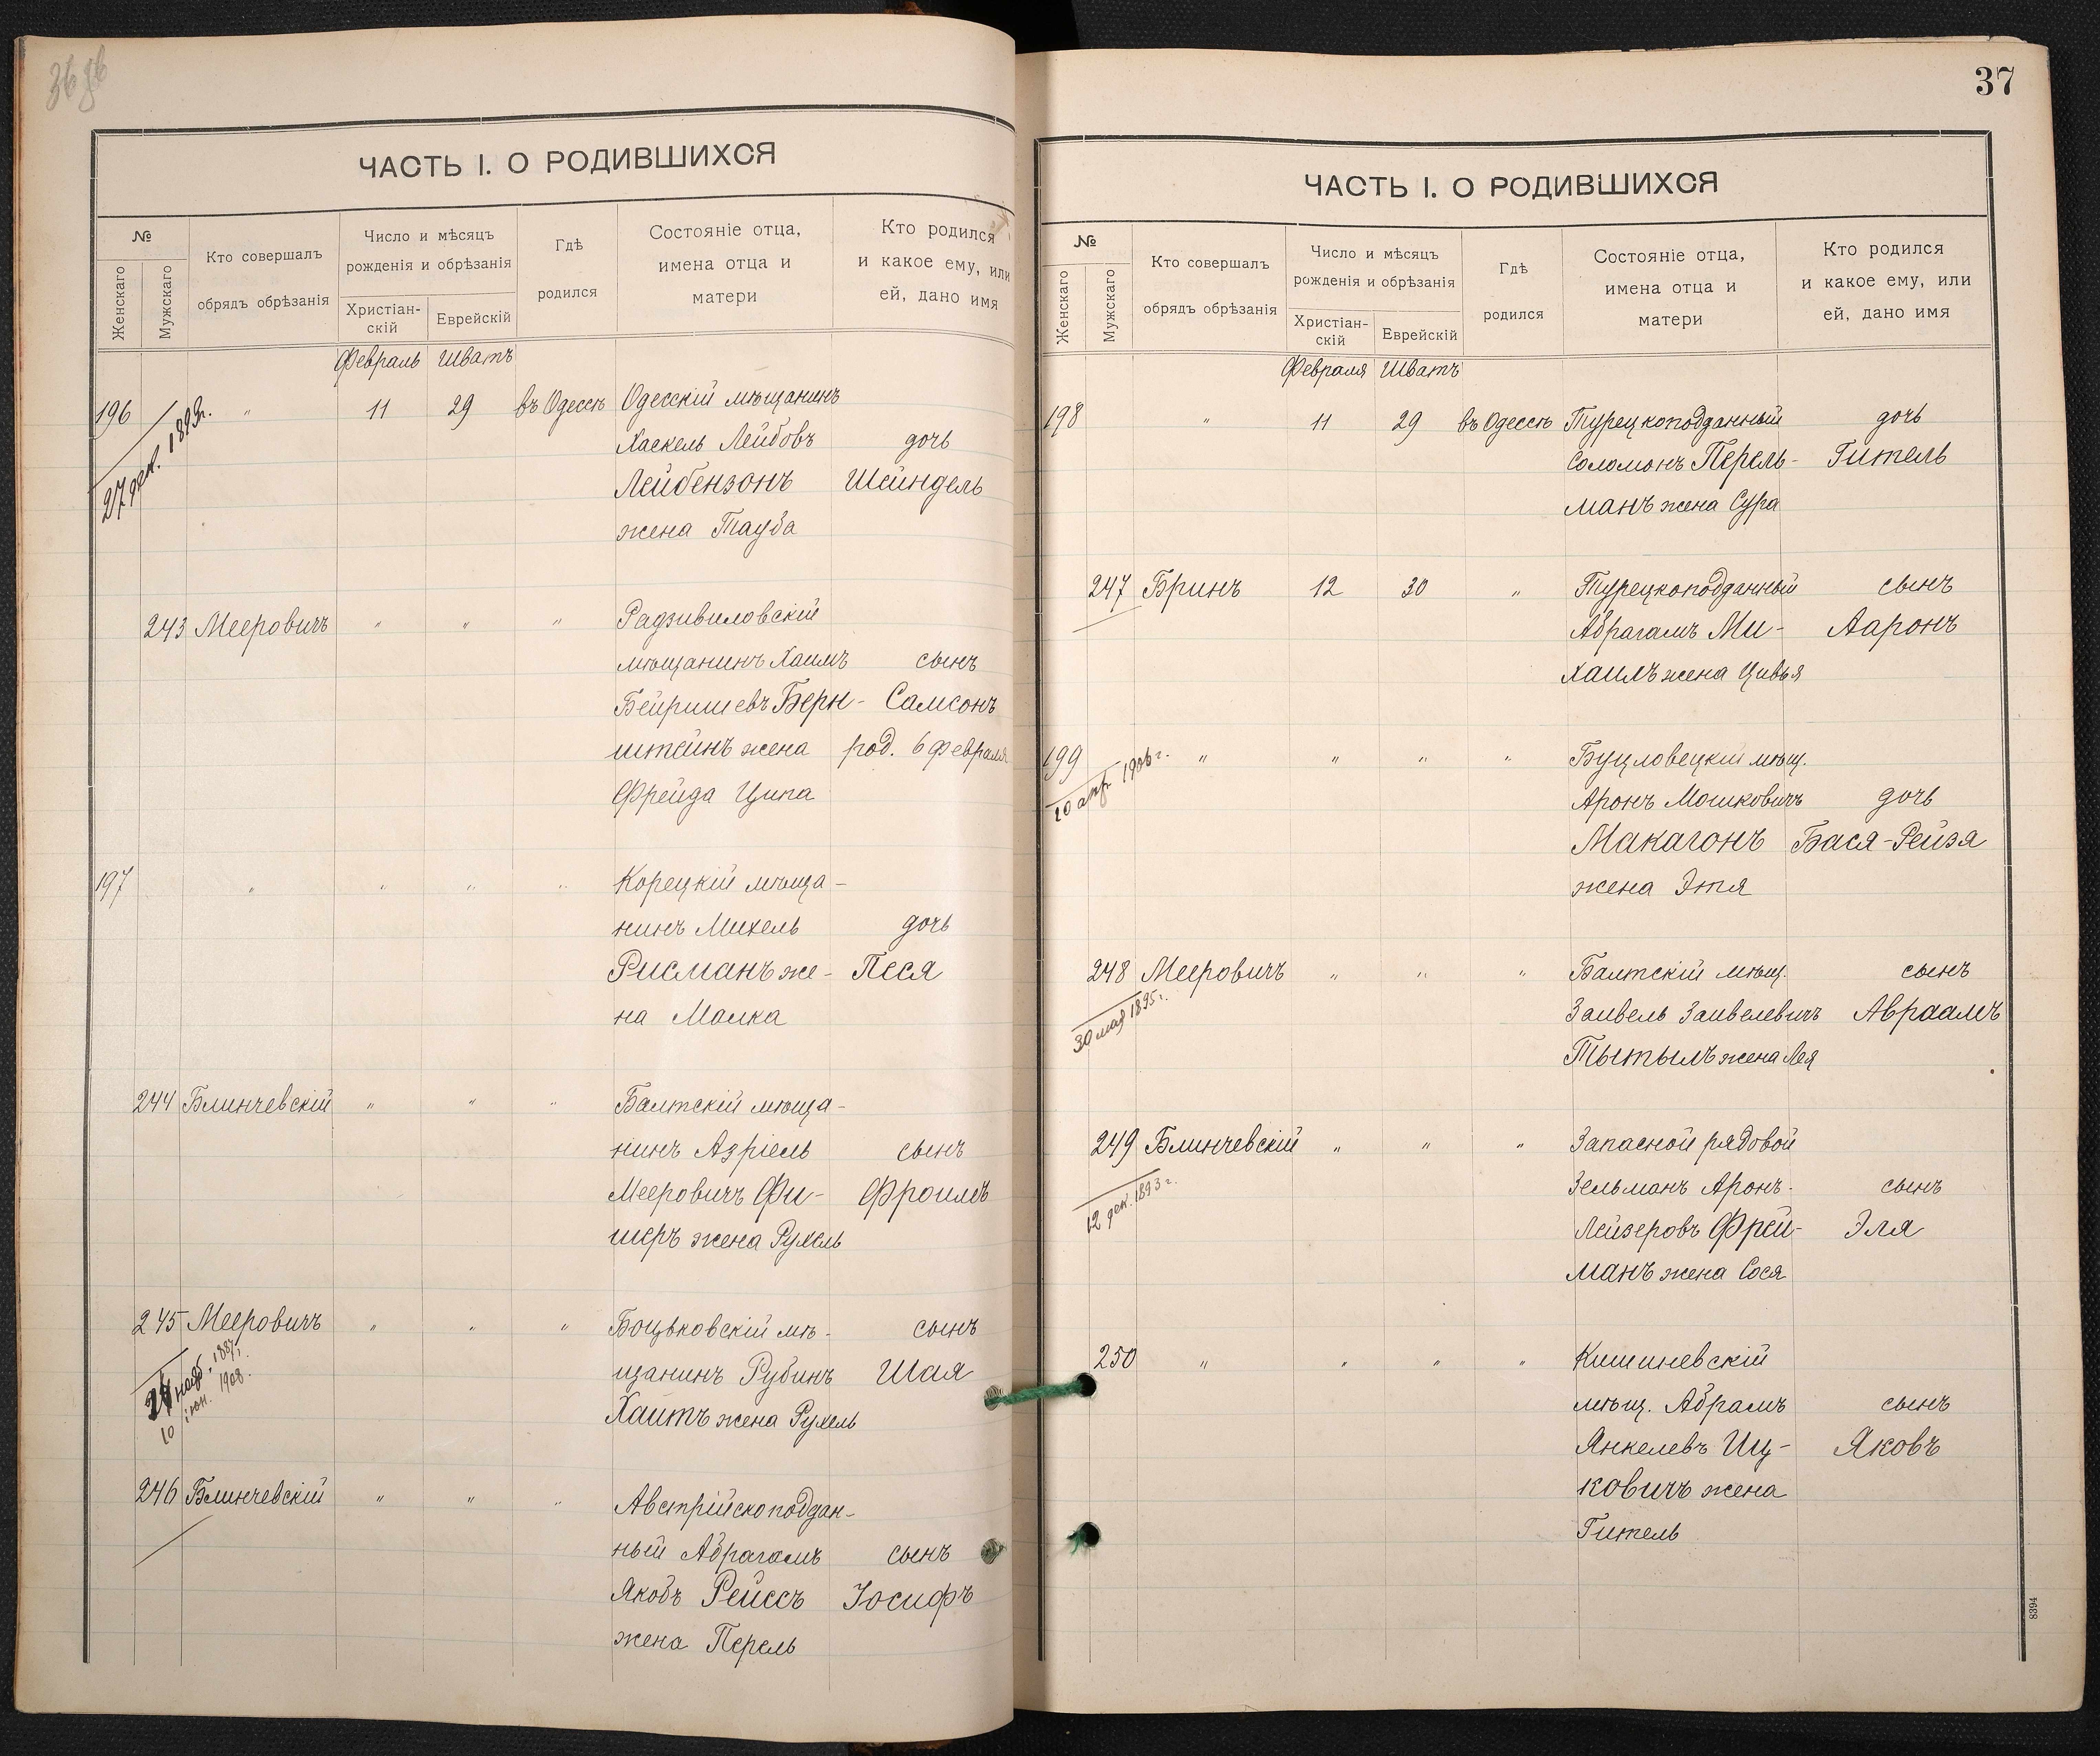 ЧАСТЬ I. О РОДИВШИХСЯ
№
Женскаго
Мужскаго
Кто совершалъ
обрядъ обрѣзанія
Число и мѣсяцъ
рожденія и обрѣзанія
Христіан-
скій
Еврейскій
Гдѣ
родился
Состояніе отца,
имена отца и
матери
Кто родился
и какое ему, или
ей, дано имя
Февраль Шватъ
196 " 11 29 въ Одессѣ Одесскій мѣщанинъ
27 дек. 1893г.
Хаскель Лейбовъ дочь
Лейбензонъ Шейндель
жена Тауба
243 Мееровичъ " " " Радзивиловскій
мѣщанинъ Хаимъ сынъ
Бейришевъ Берн- Самсонъ
штейнъ жена род. 6 Февраля
Фрейда Ципа
197 " " " " Корецкій мѣща-
нинъ Михель дочь
Рисманъ же- Песя
на Малка
244 Блинчевскій " " " Балтскій мѣща-
нинъ Азріель сынъ
Мееровичъ Фи- Фроимъ
шеръ жена Рухель
245 Мееровичъ " " " Боцьковскій мѣ- сынъ
щанинъ Рубинъ Шая
10 іюн. 1908.
Хаитъ жена Рухель
246 Блинчевскій " " " Австрійскоподдан-
ный Абрагамъ сынъ
Якобъ Рейссъ Іосифъ
жена Перель
37
ЧАСТЬ I. О РОДИВШИХСЯ
№
Женскаго
Мужскаго
Кто совершалъ
обрядъ обрѣзанія
Число и мѣсяцъ
рожденія и обрѣзанія
Христіан-
скій
Еврейскій
Гдѣ
родился
Состояніе отца,
имена отца и
матери
Кто родился
и какое ему, или
ей, дано имя
Февраля Шватъ
198 " 11 29 въ Одессѣ Турецкоподданный дочь
Соломонъ Перель- Гитель
манъ жена Сура
247 Бринъ 12 30 " Турецкоподданный сынъ
Абрагамъ Ми- Ааронъ
хаилъ жена Цивья
199 " " " " Буцловецкій мѣщ.
20 апр. 1906 г.
Аронъ Мошковичъ дочь
Макагонъ Бася-Рейзя
жена Этя
248 Мееровичъ " " " Балтскій мѣщ. сынъ
30 мая 1895 г.
Заивель Заивелевичъ Авраамъ
Тытылъ жена Лея
249 Блинчевскій " " " Запасной рядовой
12 дек. 1893 г.
Зельманъ Аронъ- сынъ
Лейзеровъ Фрей- Эля
манъ жена Сося
250 " " " " Кишиневскій
мѣщ. Абрамъ сынъ
Янкелевъ Иц- Яковъ
ковичъ жена
Гитель
8394